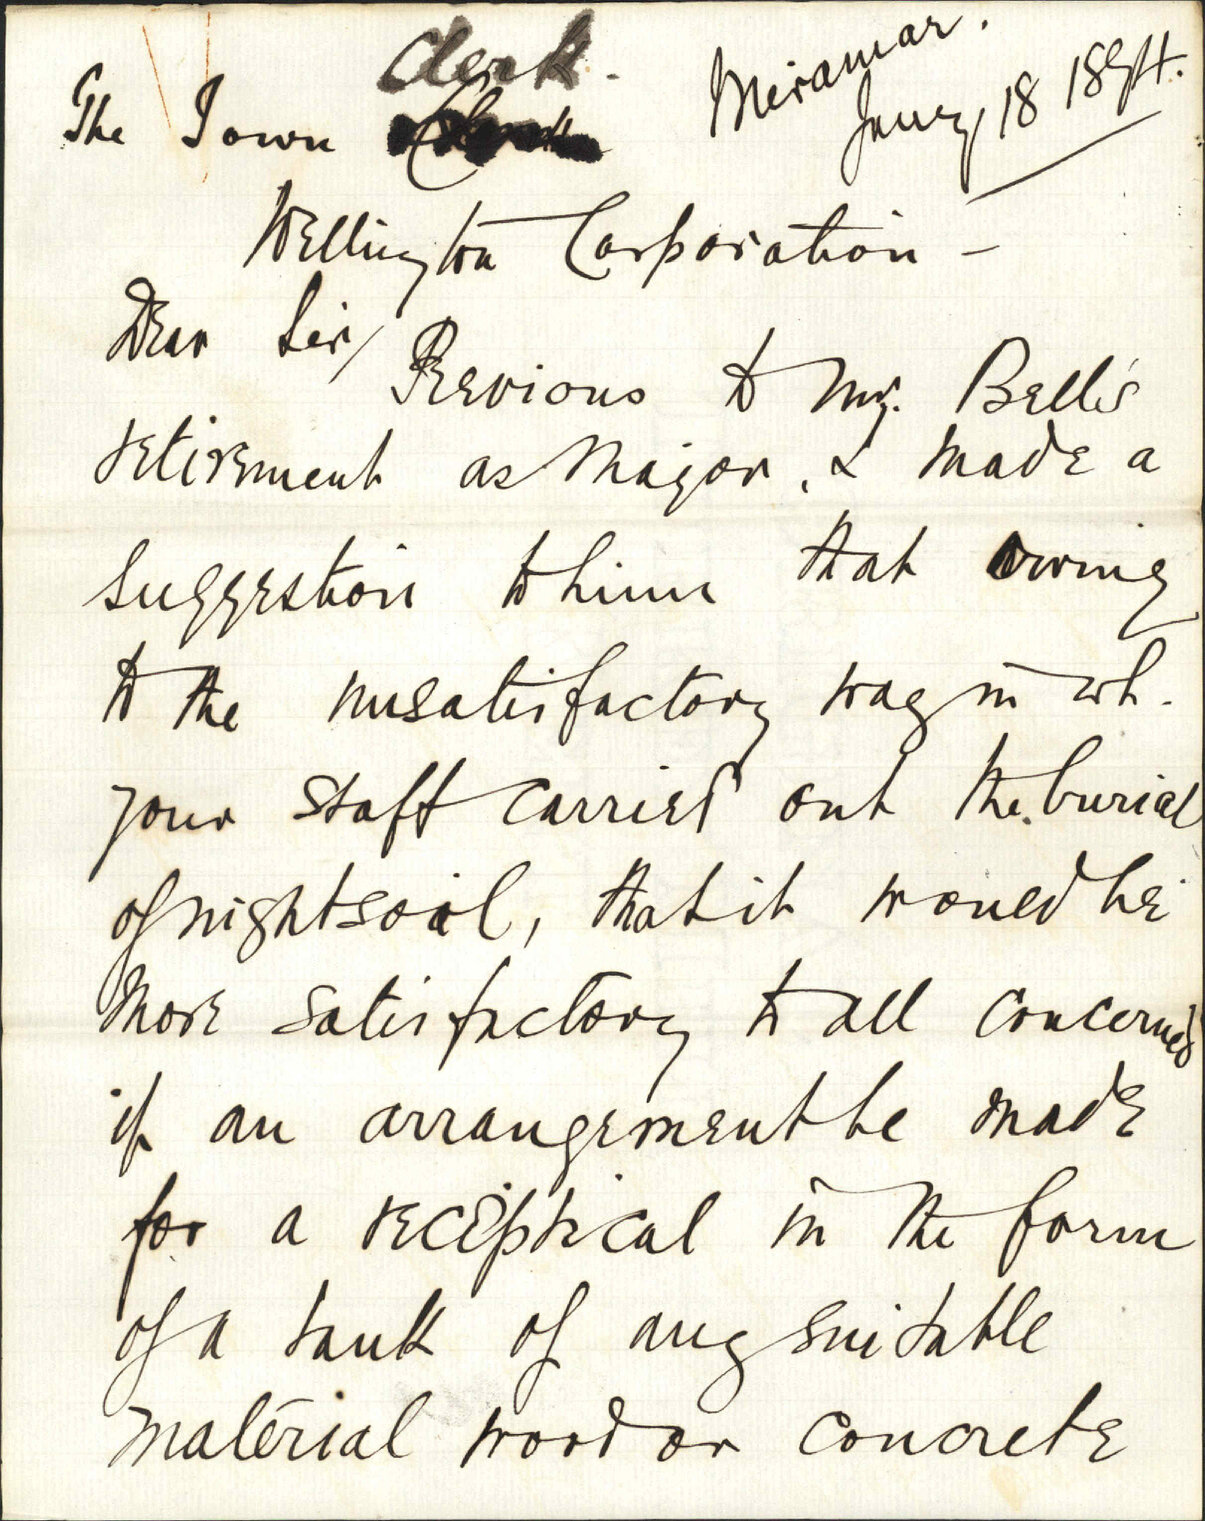 Clerk.
Miramar.
Janry 18 1894.
The Town
Wellington Corporation –
Dear Sir/
Previous to Mr. Bell's
retirement as Mayor, I made a
suggestion to him that owing
to the unsatisfactory way in wh.
your staff carried out the burial
of nightsoil, that it would be
more satisfactory to all concerned
if an arrangement be made
for a receiptical in the form
of a tank of any suitable
material wood or concrete